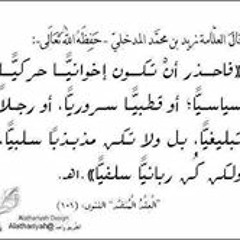 قال العلامة زيد بن محمد المدخلي -حفظه الله تعالى-:
«فاحذر أن تكون إخوانيًّا حركيًّا
سياسيًّا؛ أو قطبيًّا سروريًّا، أو رجلاً
تبليغيًّا، بل ولا تكن مذبذبًا سلبيًّا،
ولكن كُن ربانيًّا سلفيًّا» .اهـ.
"العقد المنضد" الفنون، (١٥٦)
Alathariyah Design
Alathariyah@